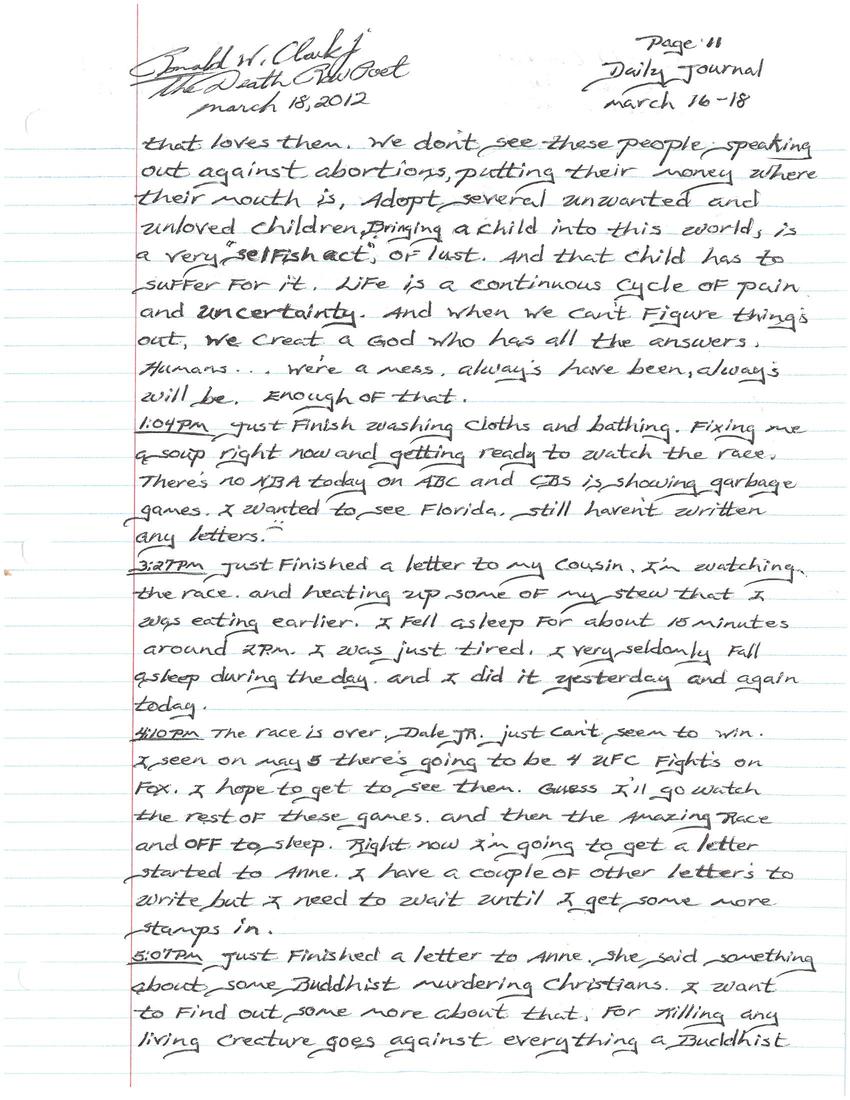 Ronald W. Clark Jr
The Death Row Poet
march 18, 2012
Page 11
Daily Journal
march 16-18
that loves them. We don't see these people speaking
out against abortions, putting their money where
their mouth is, Adopt several unwanted and
unloved children, Bringing a child into this world, is
a very "selfish act", of lust. And that child has to
suffer for it. Life is a continuous cycle of pain
and uncertainty. And when we can't figure thing's
out, we creat a God who has all the answers.
Humans... we're a mess. always have been, always
will be. Enough of that.
1:04PM just finish washing cloths and bathing. Fixing me
a soup right now and getting ready to watch the race.
There's no NBA today on ABC and CBS is showing garbage
games. I wanted to see Florida. still haven't written
any letters.
3:27PM just finished a letter to my cousin, I'm watching
the race. and heating up some of my stew that I
was eating earlier. I fell asleep for about 15 minutes
around 2PM. I was just tired. I very seldomly fall
asleep during the day. and I did it yesterday and again
today.
4:10PM The race is over, Dale JR. just can't seem to win.
I seen on may 5 there's going to be 4 UFC fight's on
Fox. I hope to get to see them. Guess I'll go watch
the rest of these games. and then the Amazing Race
and off to sleep. Right now I'm going to get a letter
started to Anne. I have a couple of other letter's to
write but I need to wait until I get some more
stamps in.
5:07PM just finished a letter to Anne. she said something
about some Buddhist murdering Christians. I want
to find out some more about that, for killing any
living creature goes against everything a Buddhist